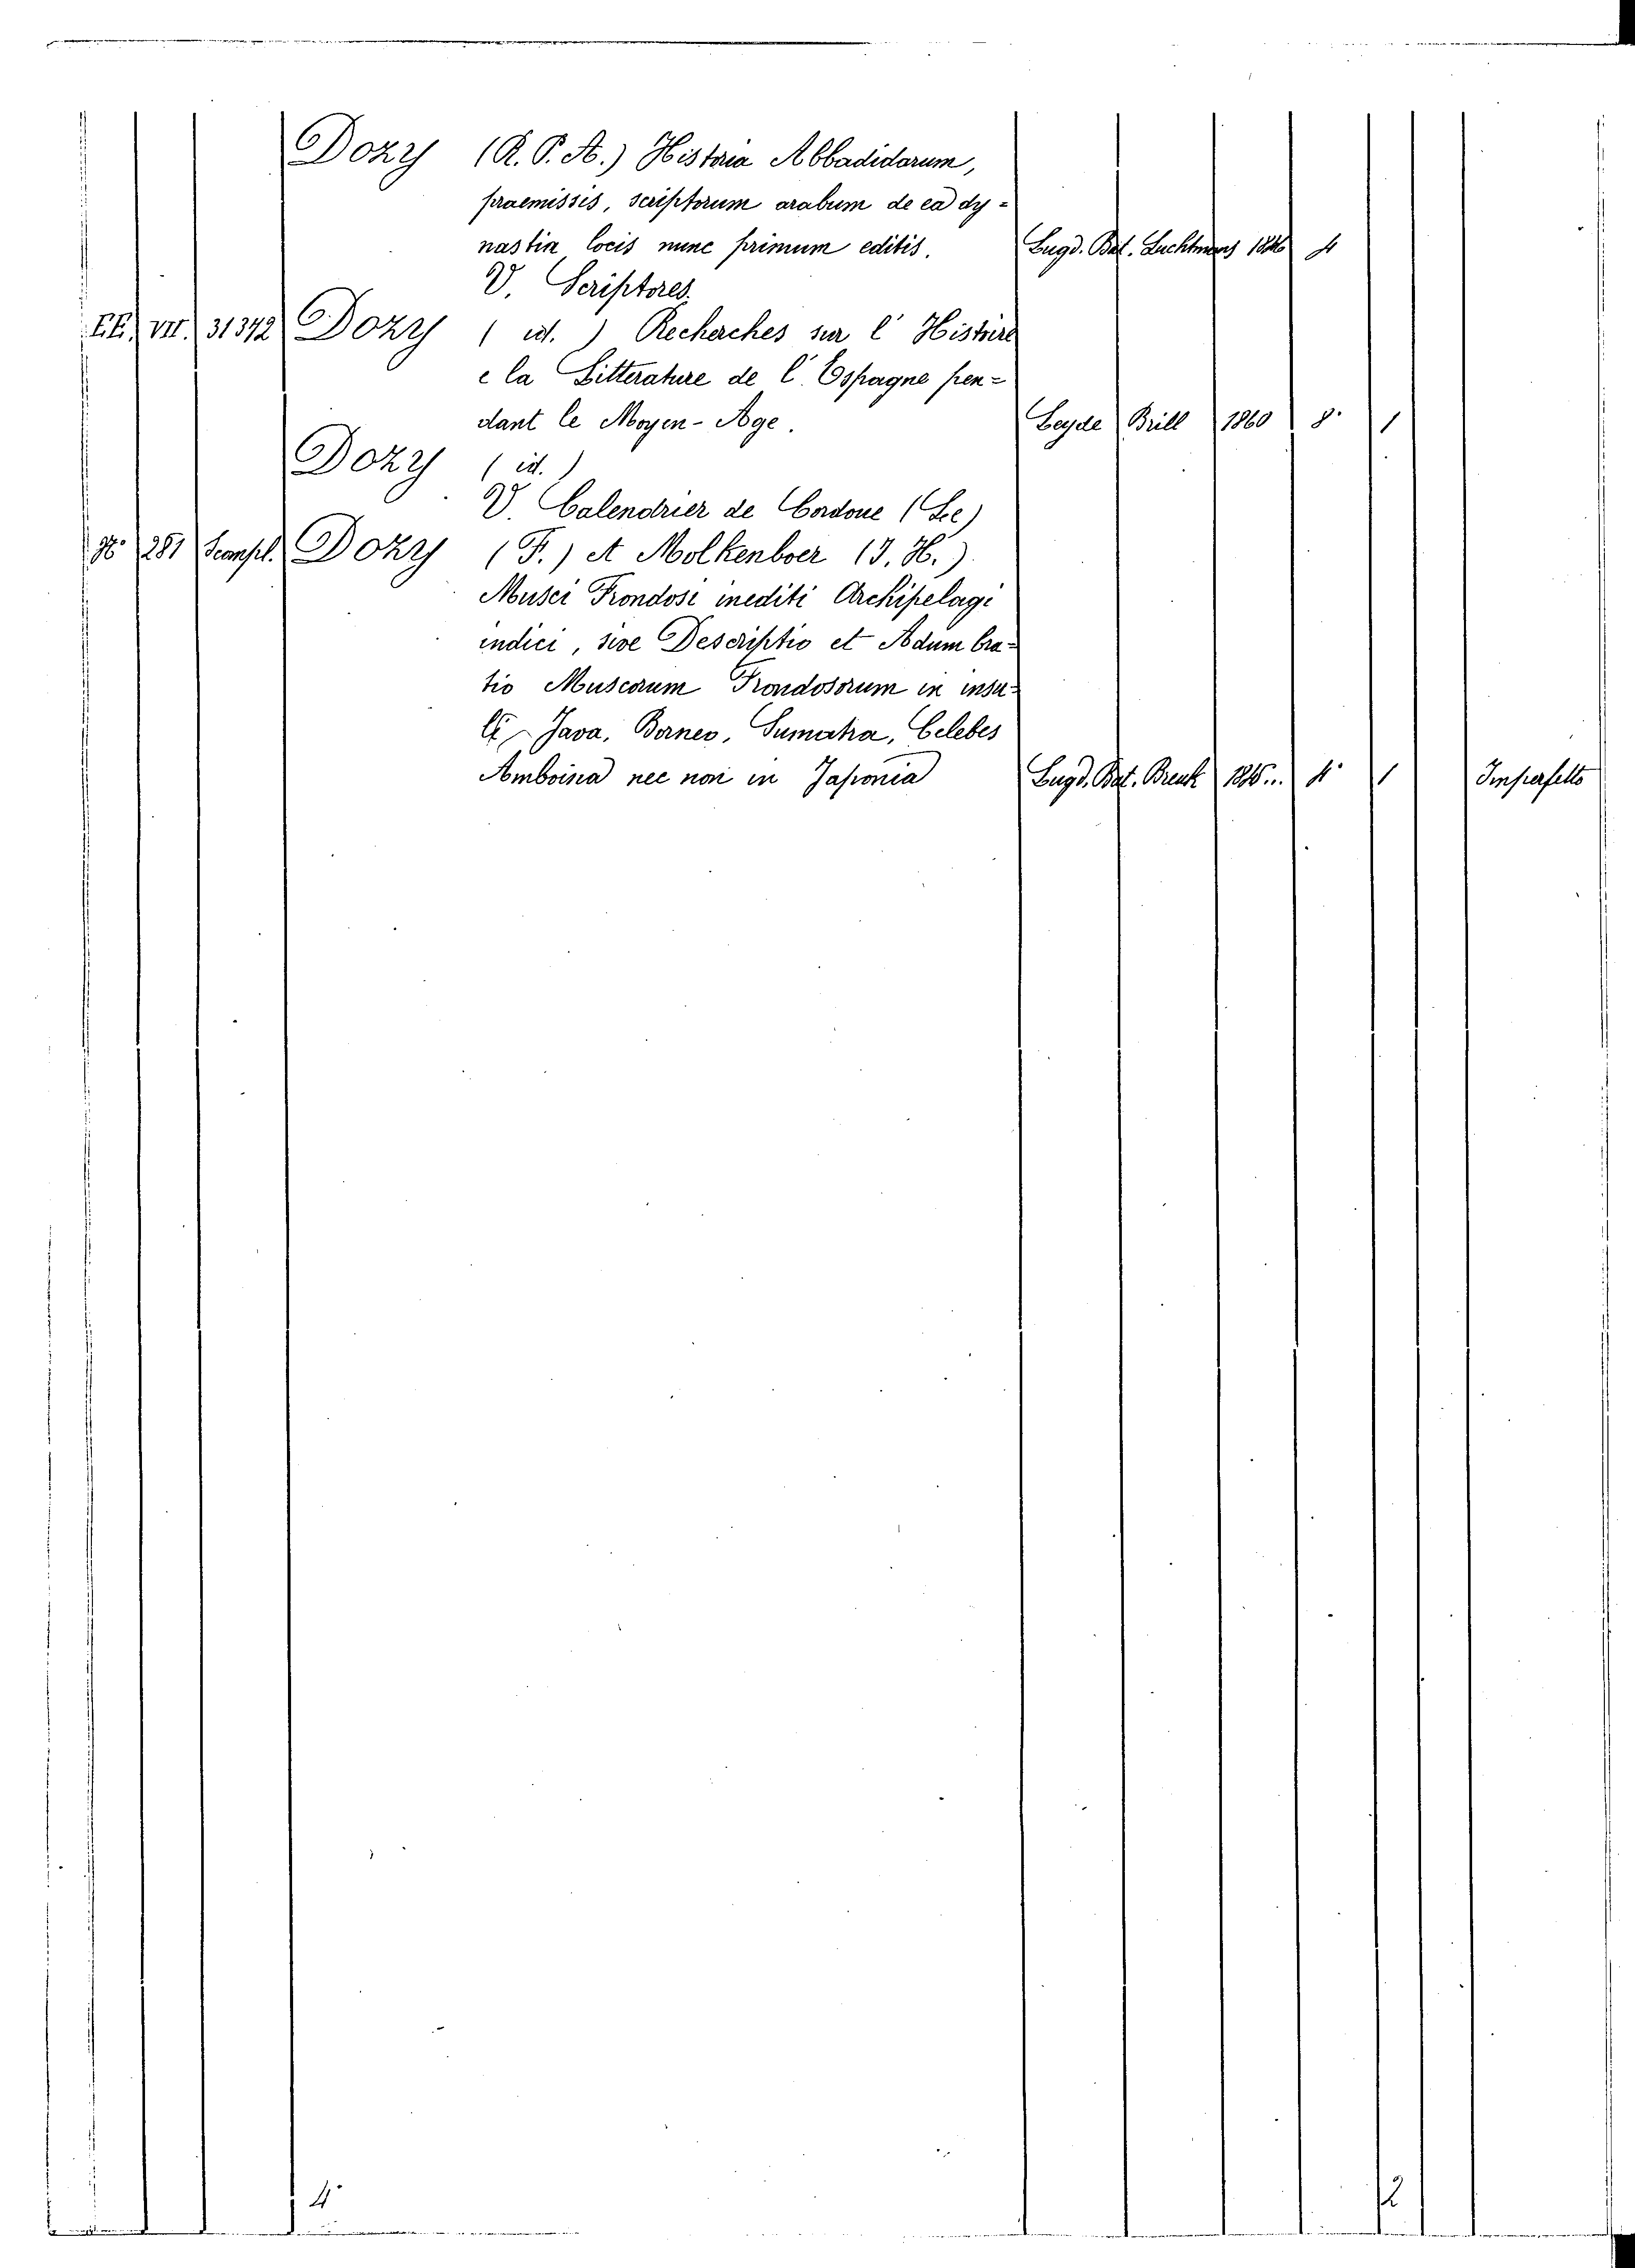 Dozy (R. P. A.) Historia Abbadidarum,
praemissis, scriptorum arabum de ea dy=
nastia locis nunc primum editis. Lugd. Bat. Luchtmans 1846 4
V. Scriptores.
EE. VII. 31342 Dozy ( id. ) Recherches sur l' Histoire
e la Litterature de l' Espagne pen=
dant le Moyen-Age. Leyde Brill 1860 8° 1
Dozy ( id. )
V. Calendrier de Cordoue (Le)
H. 281 Scansil. Dozy (F.) et Molkenboer (J. H.)
Musci Frondosi inediti Archipelagi
indici, sive Descriptio et Adumbra=
tio Muscorum Frondosorum in insu=
li Java, Borneo, Sumatra, Celebes
Amboina nec non in Japonia Lugd. Bat. 184... 4° 1 Imperfetto
4 2